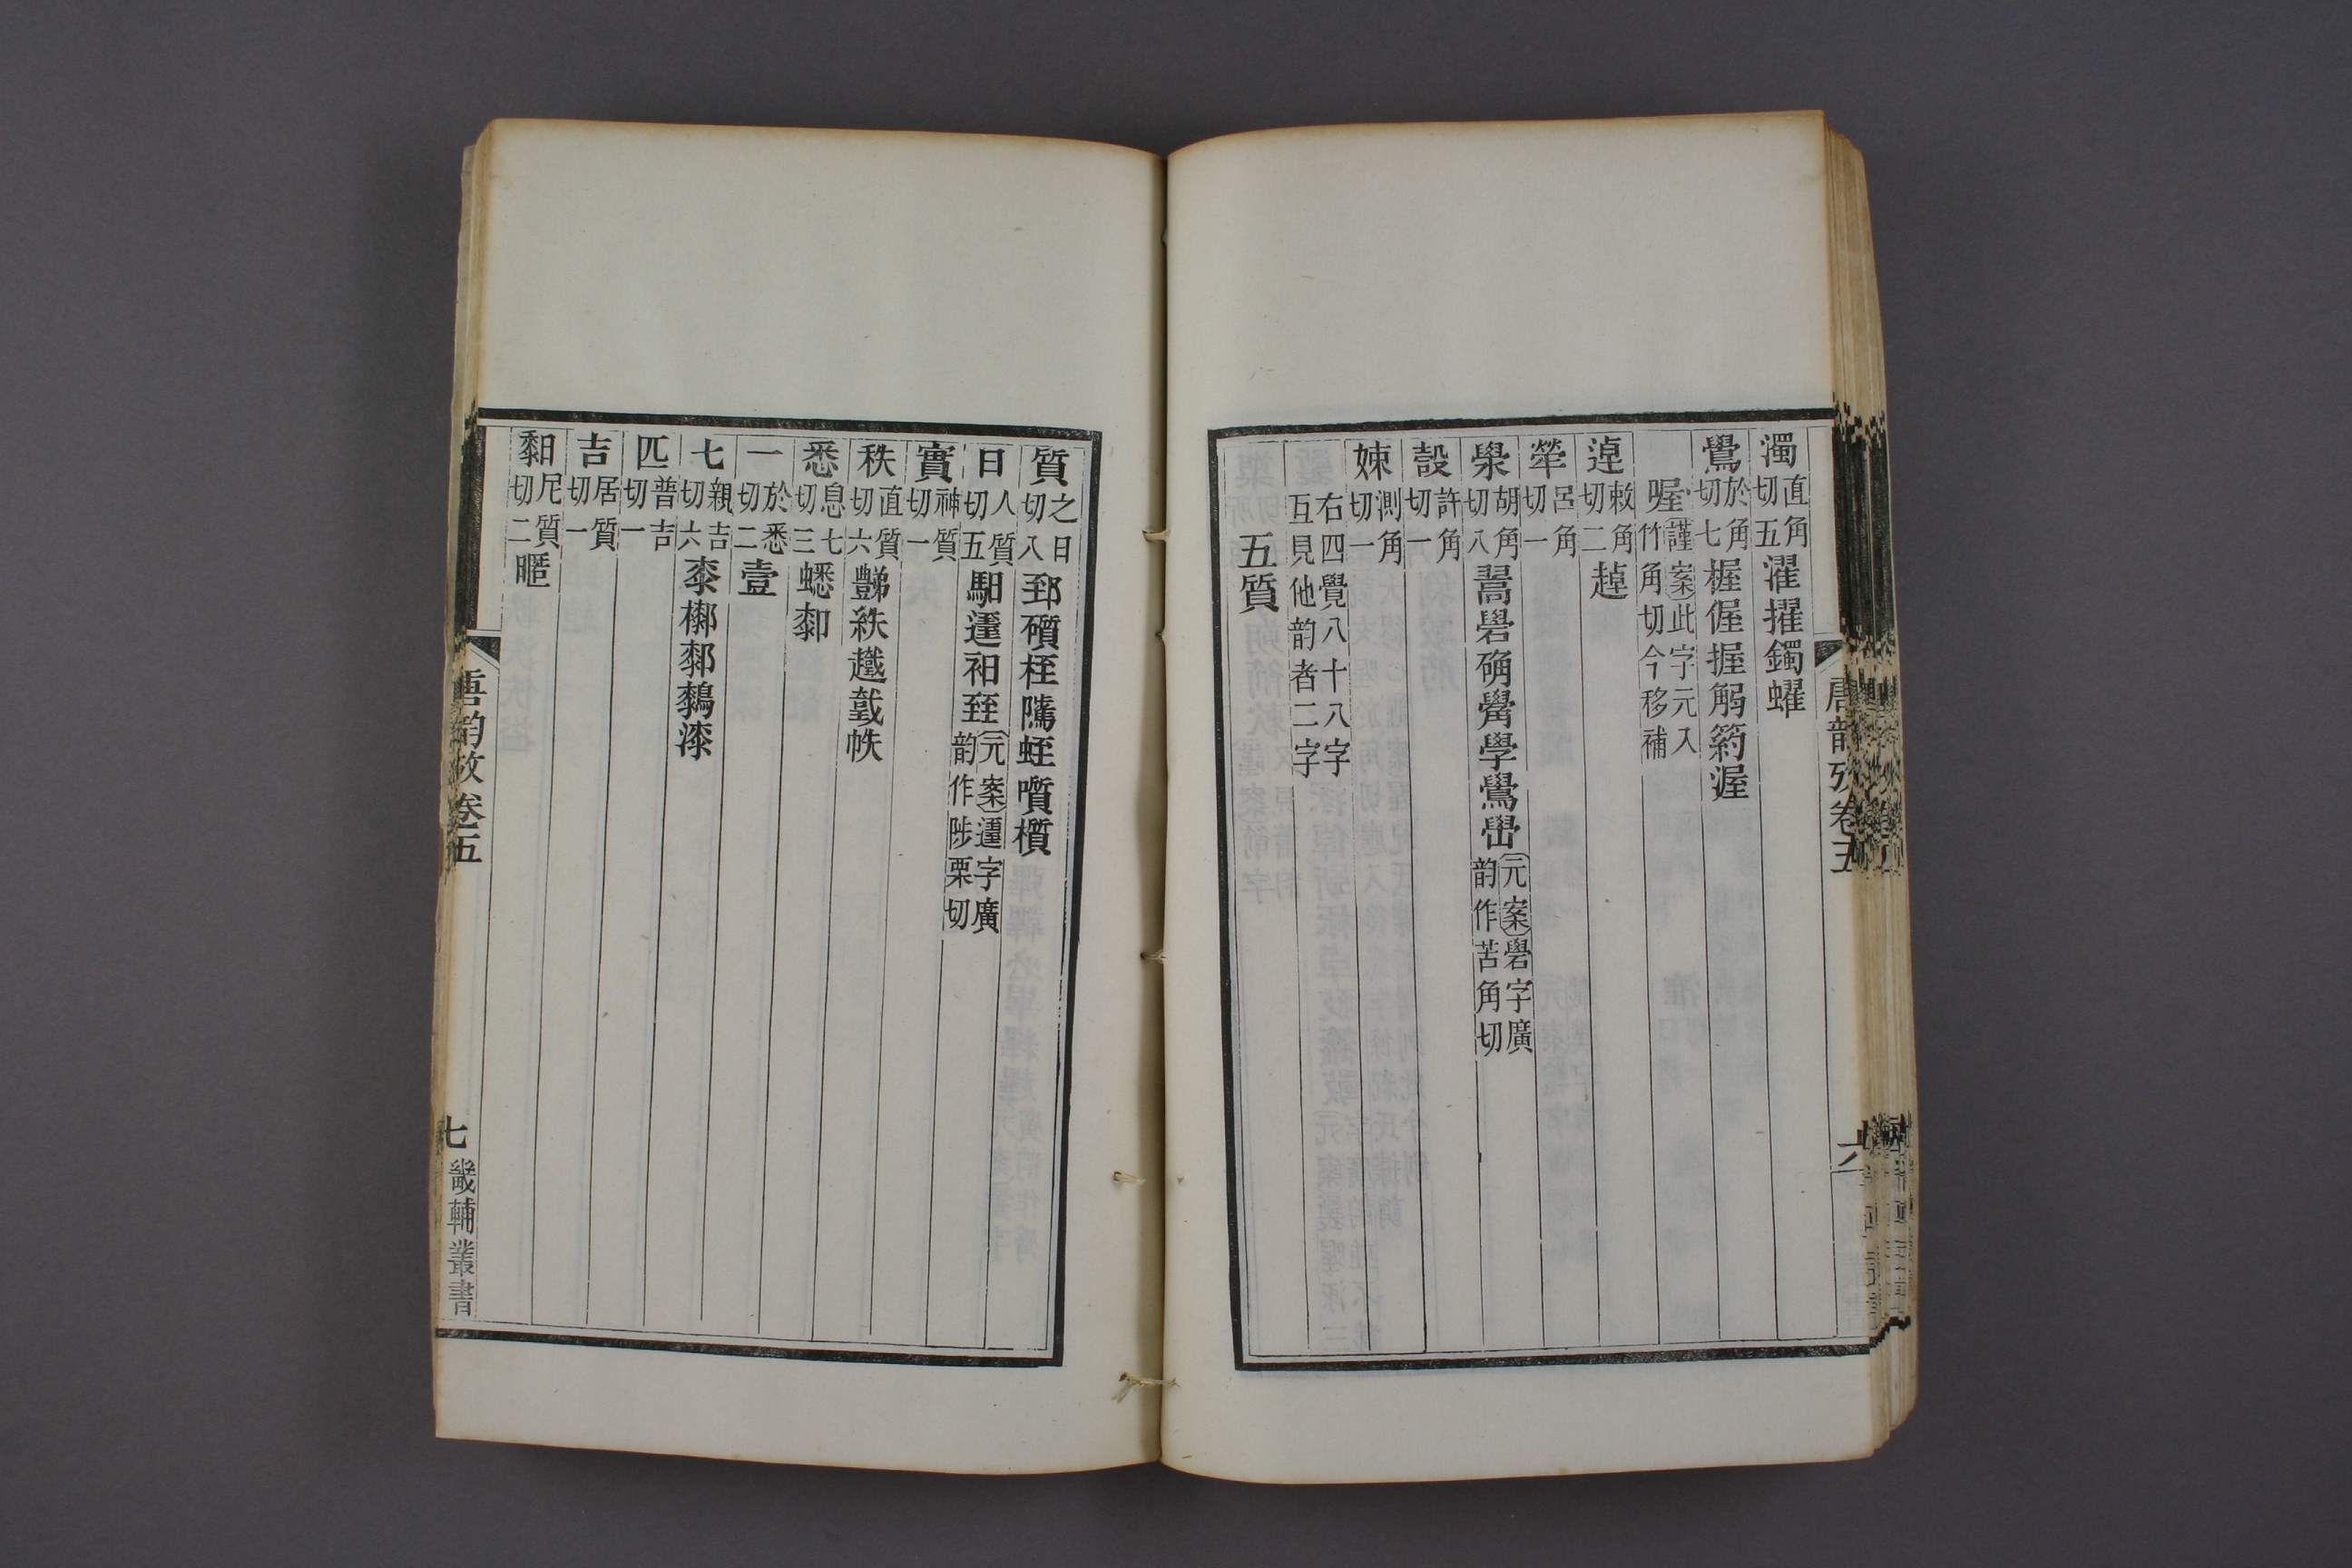 濁直角切五濯擢鐲蠗
鷽於角切七楃偓握䚥箹渥
喔謹案此字元入竹角切今移補
逴敕角切二趠
犖呂角切一
泶胡角切八翯礐确觷學鷽嶨元案礐字廣韵作苦角切
㱿許角切一
娕測角切一
右四覺八十八字互見他韵者二字
五質
唐韵攷卷五
六
質之日切八郅礩桎騭蛭噴櫍
日人質切五馹遷衵臸元案字廣韵作陟栗切
實神質切一
秩直質切六豑紩䟾䟴帙
悉息七切三蟋厀
一於悉切二壹
七親吉切六桼㯃郪鶈漆
匹普吉切一
吉居質切一
䵒尼質切二暱
唐韵攷卷五
七
畿輔叢書